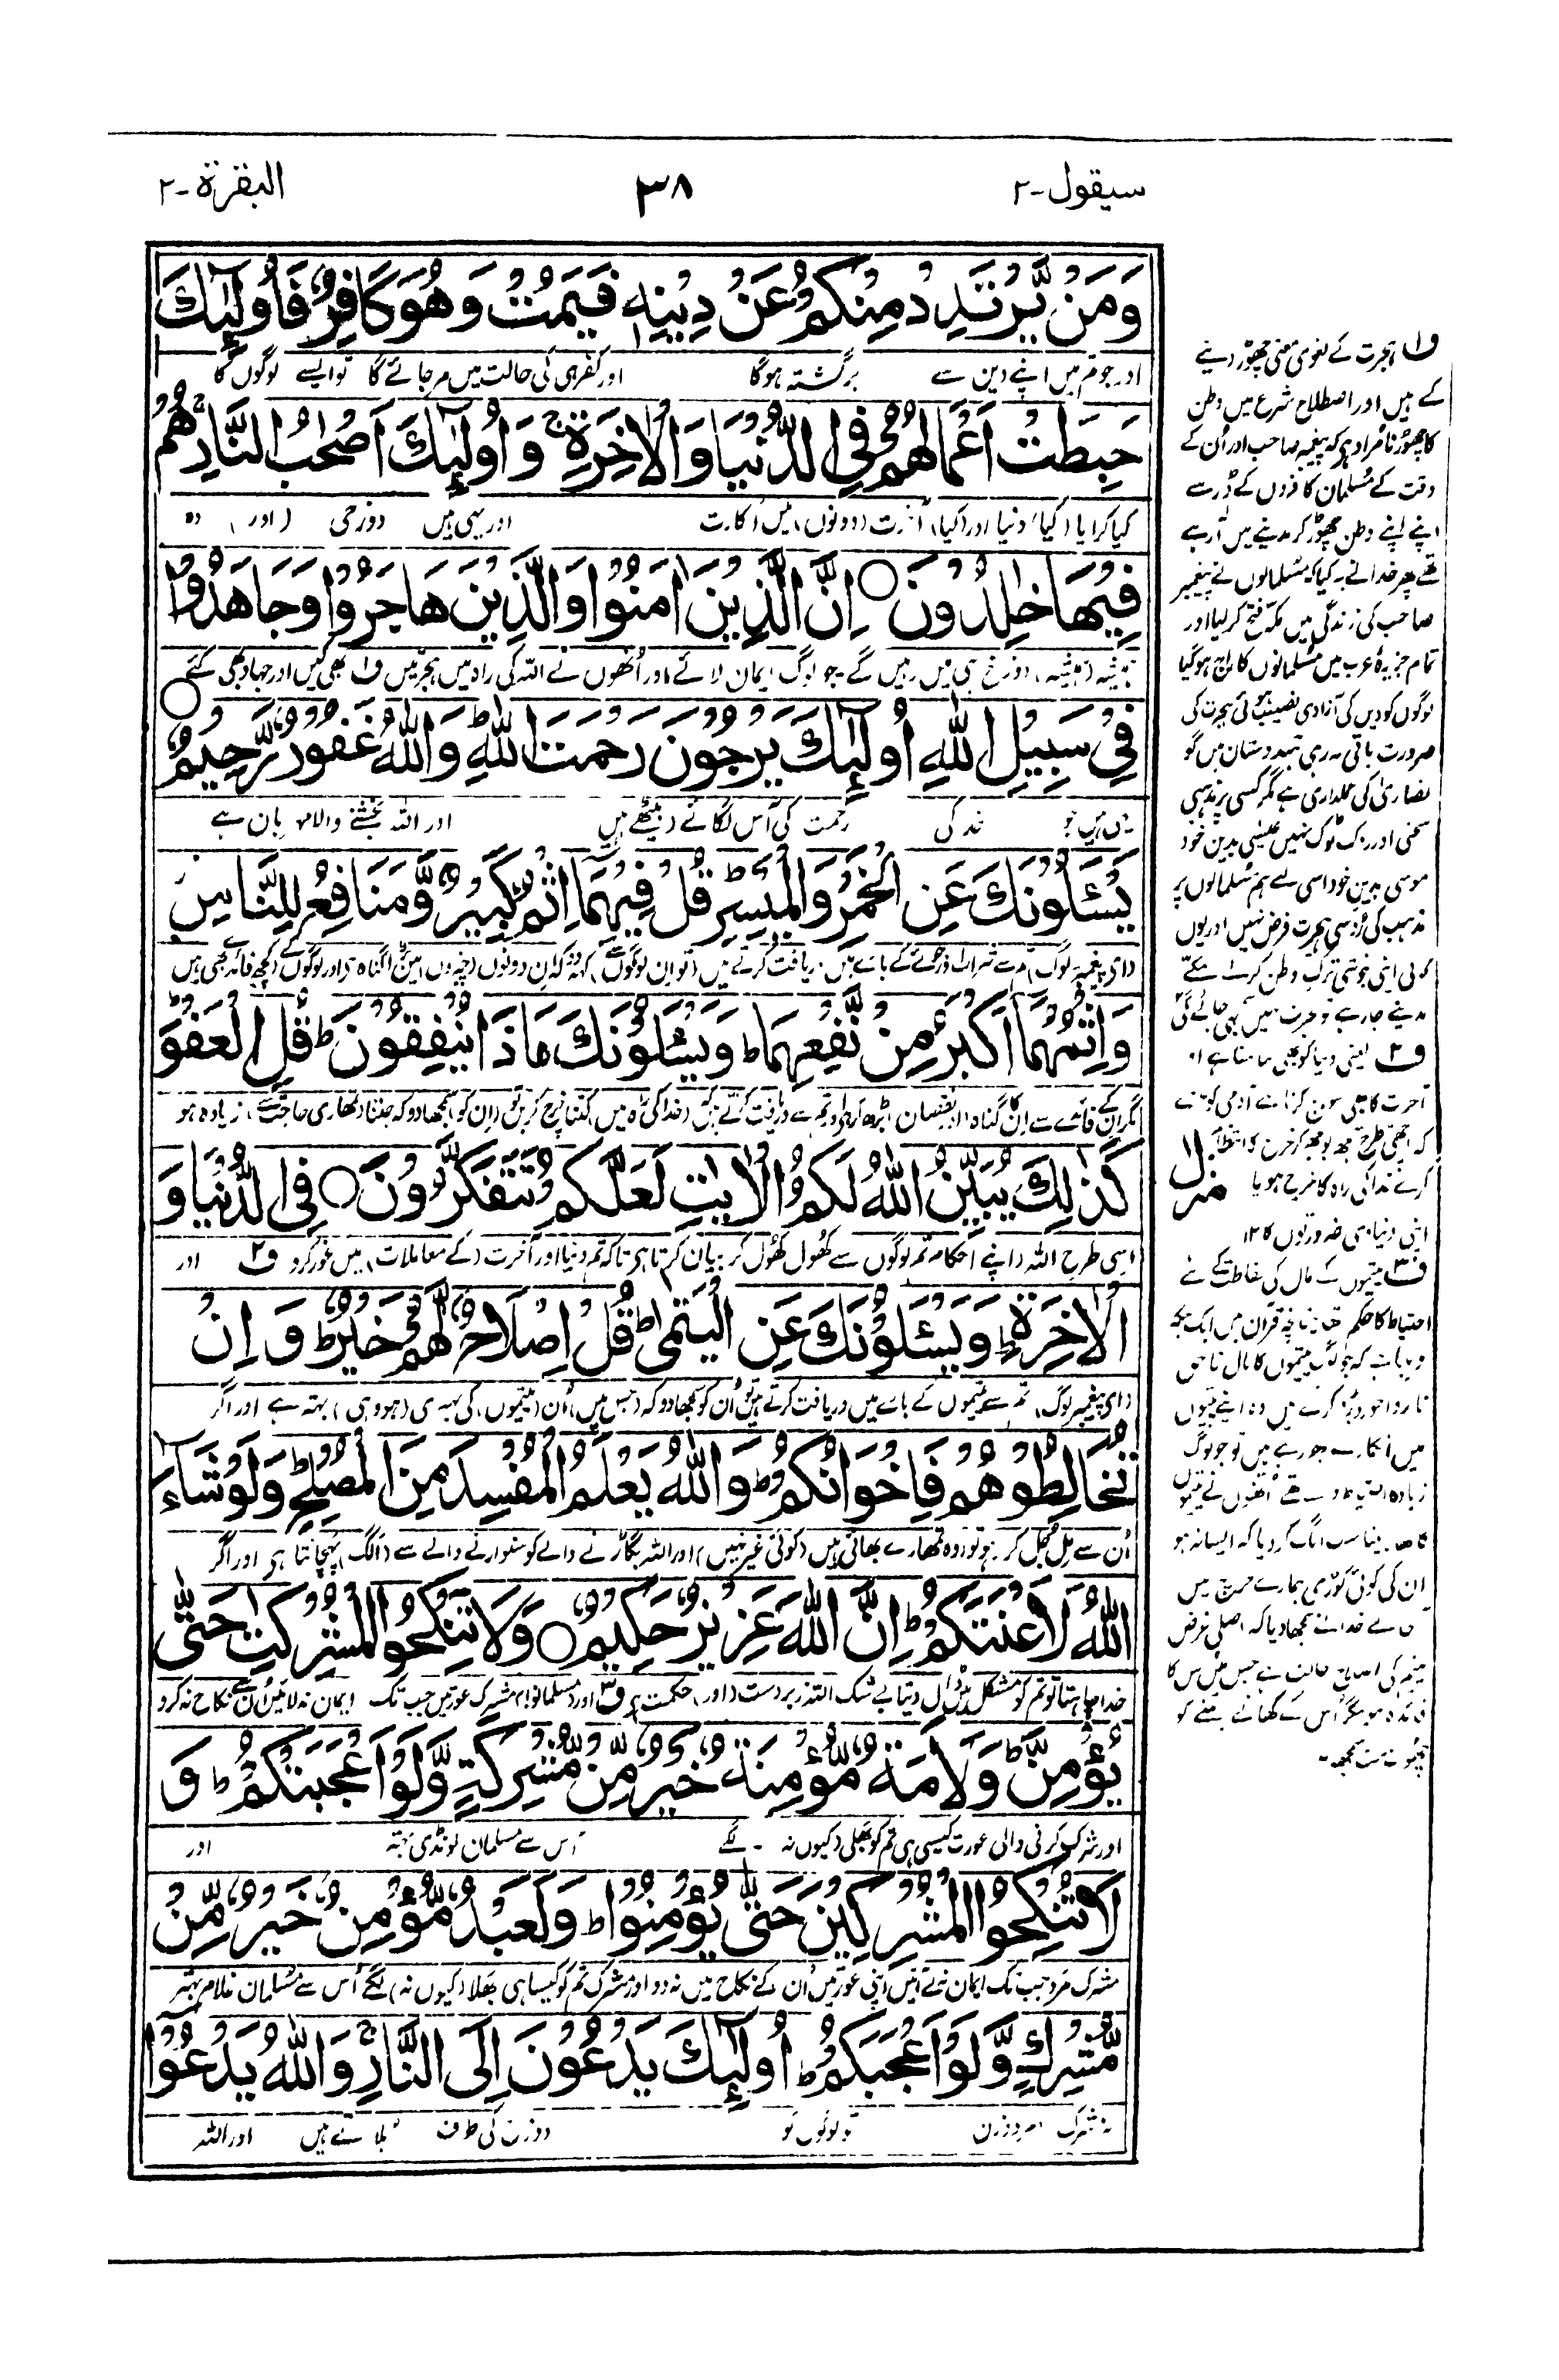 سیقول-۲
۳۸
البقرة-۲
وَمَنْ يَّرْتَدِدْ مِنْكُمْ عَنْ دِيْنِهٖ فَيَمُتْ وَهُوَ كَافِرٌ فَاُولٰٓئِكَ
اور جو تم میں اپنے دین سے برگشتہ ہوگا اور کفر ہی کی حالت میں مر جائے گا تو ایسے لوگوں کا
حَبِطَتْ اَعْمَالُهُمْ فِي الدُّنْيَا وَالْاٰخِرَةِ ۚ وَاُولٰٓئِكَ اَصْحٰبُ النَّارِ ۚ هُمْ
کیا کرایا (کیا) دنیا اور (کیا) آخرت (دونوں) میں اکارت اور یہی ہیں دوزخی (اور) وہ
فِيْهَا خٰلِدُوْنَ ○ اِنَّ الَّذِيْنَ اٰمَنُوْا وَالَّذِيْنَ هَاجَرُوْا وَجَاهَدُوْا
ہمیشہ (ہمیشہ) دوزخ ہی میں رہیں گے جو لوگ ایمان لائے اور اُنھوں نے اللہ کی راہ میں ہجرتیں ف۱ بھی کیں اور جہاد بھی کئے
فِيْ سَبِيْلِ اللّٰهِ اُولٰٓئِكَ يَرْجُوْنَ رَحْمَتَ اللّٰهِ ؕ وَاللّٰهُ غَفُوْرٌ رَّحِيْمٌ ○
رحمت کی آس لگائے (بیٹھے) ہیں اور اللہ بخشنے والا
يَسْـَٔلُوْنَكَ عَنِ الْخَمْرِ وَالْمَيْسِرِ ؕ قُلْ فِيْهِمَآ اِثْمٌ كَبِيْرٌ وَّمَنَافِعُ لِلنَّاسِ ز
(اے پیغمبر لوگ) تم سے شراب اور جوئے کے بارے میں دریافت کرتے ہیں (تو ان لوگوں سے) کہدو کہ ان دونوں (چیزوں) میں بڑا گناہ ہی اور لوگوں کے کچھ فائدے بھی ہیں
وَاِثْمُهُمَآ اَكْبَرُ مِنْ نَّفْعِهِمَا ؕ وَيَسْـَٔلُوْنَكَ مَاذَا يُنْفِقُوْنَ ؕ قُلِ الْعَفْوَ ؕ
مگر ان کے فائدے سے ان کا گناہ (اور نقصان) بڑھ کر ہی اور تم سے دریافت کرتے ہیں کہ (خدا کی راہ میں) کتنا خرچ کریں تو (ان کو) سمجھا دو کہ جتنا (تمھاری حاجت سے) زیادہ ہو
كَذٰلِكَ يُبَيِّنُ اللّٰهُ لَكُمُ الْاٰيٰتِ لَعَلَّكُمْ تَتَفَكَّرُوْنَ ○ فِي الدُّنْيَا وَ
اسی طرح اللہ (اپنے) احکام تم لوگوں سے کھول کھول کر بیان کرتا ہی تاکہ تم دنیا اور آخرت (کے معاملات) میں غور کرو ف۲ اور
الْاٰخِرَةِ ؕ وَيَسْـَٔلُوْنَكَ عَنِ الْيَتٰمٰى ؕ قُلْ اِصْلَاحٌ لَّهُمْ خَيْرٌ ؕ وَاِنْ
(اے پیغمبر لوگ) تم سے یتیموں کے بارے میں دریافت کرتے ہیں تو اُن کو سمجھا دو کہ (جس میں) اُن (یتیموں) کی بہتری (ہو وہی) بہتر ہے اور اگر
تُخَالِطُوْهُمْ فَاِخْوَانُكُمْ ؕ وَاللّٰهُ يَعْلَمُ الْمُفْسِدَ مِنَ الْمُصْلِحِ ؕ وَلَوْ شَآءَ
اُن سے مل جل کر رہو تو (وہ) تمھارے بھائی ہیں (کوئی غیر نہیں) اور اللہ بگاڑنے والے کو سنوارنے والے سے (الگ) پہچانتا ہی اور اگر
اللّٰهُ لَاَعْنَتَكُمْ ؕ اِنَّ اللّٰهَ عَزِيْزٌ حَكِيْمٌ ○ وَلَا تَنْكِحُوا الْمُشْرِكٰتِ حَتّٰى
خدا چاہتا تو تم کو مشکل میں ڈال دیتا بے شک اللہ زبردست (اور) حکمت ف۳ اور (مسلمانو!) مشرک عورتیں جب تک ایمان نہ لائیں اُن سے نکاح نہ کرو
يُؤْمِنَّ ؕ وَلَاَمَةٌ مُّؤْمِنَةٌ خَيْرٌ مِّنْ مُّشْرِكَةٍ وَّلَوْ اَعْجَبَتْكُمْ ؕ وَ
اور شرک کرنی والی عورت کیسی ہی تم کو بھلی (کیوں نہ) لگے اُس سے مسلمان لونڈی بہتر اور
لَا تُنْكِحُوا الْمُشْرِكِيْنَ حَتّٰى يُؤْمِنُوْا ؕ وَلَعَبْدٌ مُّؤْمِنٌ خَيْرٌ مِّنْ
مشرک مرد جب تک ایمان نہ لائیں اپنی عورتیں اُن کے نکاح میں نہ دو اور مشرک تم کو کیسا ہی بھلا (کیوں نہ) لگے اُس سے مسلمان غلام بہتر
مُّشْرِكٍ وَّلَوْ اَعْجَبَكُمْ ؕ اُولٰٓئِكَ يَدْعُوْنَ اِلَى النَّارِ ۚ وَاللّٰهُ يَدْعُوْٓا
دوزخ کی طرف بلاتے ہیں اور اللہ
ف۱ ہجرت کے لغوی معنی چھوڑ دینے
کے ہیں اور اصطلاح شرع میں وطن
کا چھوڑنا مُراد ہی کہ پیغمبر صاحب اور اُن کے
وقت کے مُسلمان کافروں کے ڈر سے
اپنے اپنے وطن چھوڑ کر مدینے میں آ رہے
تھے پھر خدا نے یہ کیا کہ مسلمانوں نے پیغمبر
صاحب کی زندگی میں مکہ فتح کر لیا اور
تمام جزیرۂ عرب میں مُسلمانوں کا راج ہو گیا
لوگوں کو دین کی آزادی نصیب ہوئی ہجرت کی
ضرورت باقی نہ رہی ہندوستان میں گو
نصاریٰ کی عملداری ہے مگر کسی پر مذہبی
سختی اور روک ٹوک نہیں عیسیٰ بدین خود
موسیٰ بدین خود اسی لئے ہم مُسلمانوں پر
مذہب کی رُو سے ہجرت فرض نہیں اور یوں
کوئی اپنی خوشی ترک وطن کر کے
مدینے جا رہے تو ہجرت نہیں کہی جائے گی
ف۲ یعنی دنیا کو بھی
آخرت کا بھی
کرے
منزل
اپنی دنیاوی ضرورتوں کا ۱۲
ف۳ یتیموں کے مال کی حفاظت کے لئے
احتیاط کا حکم تھا چنانچہ قرآن میں ایک جگہ
کہ جو لوگ یتیموں کا مال ناحق
میں وہ اپنے پیٹوں
میں انگارے بھر رہے ہیں تو جو لوگ
زیادہ تھے اُنھوں نے یتیموں
الگ کر دیا کہ ایسا نہ ہو
ان کی کوئی کوڑی ہمارے خرچ میں
خدا نے سمجھا دیا کہ اصلی غرض
یتیم کی ہے جس میں اس کا
فائدہ ہو مگر اُس کے کھانے پینے کو